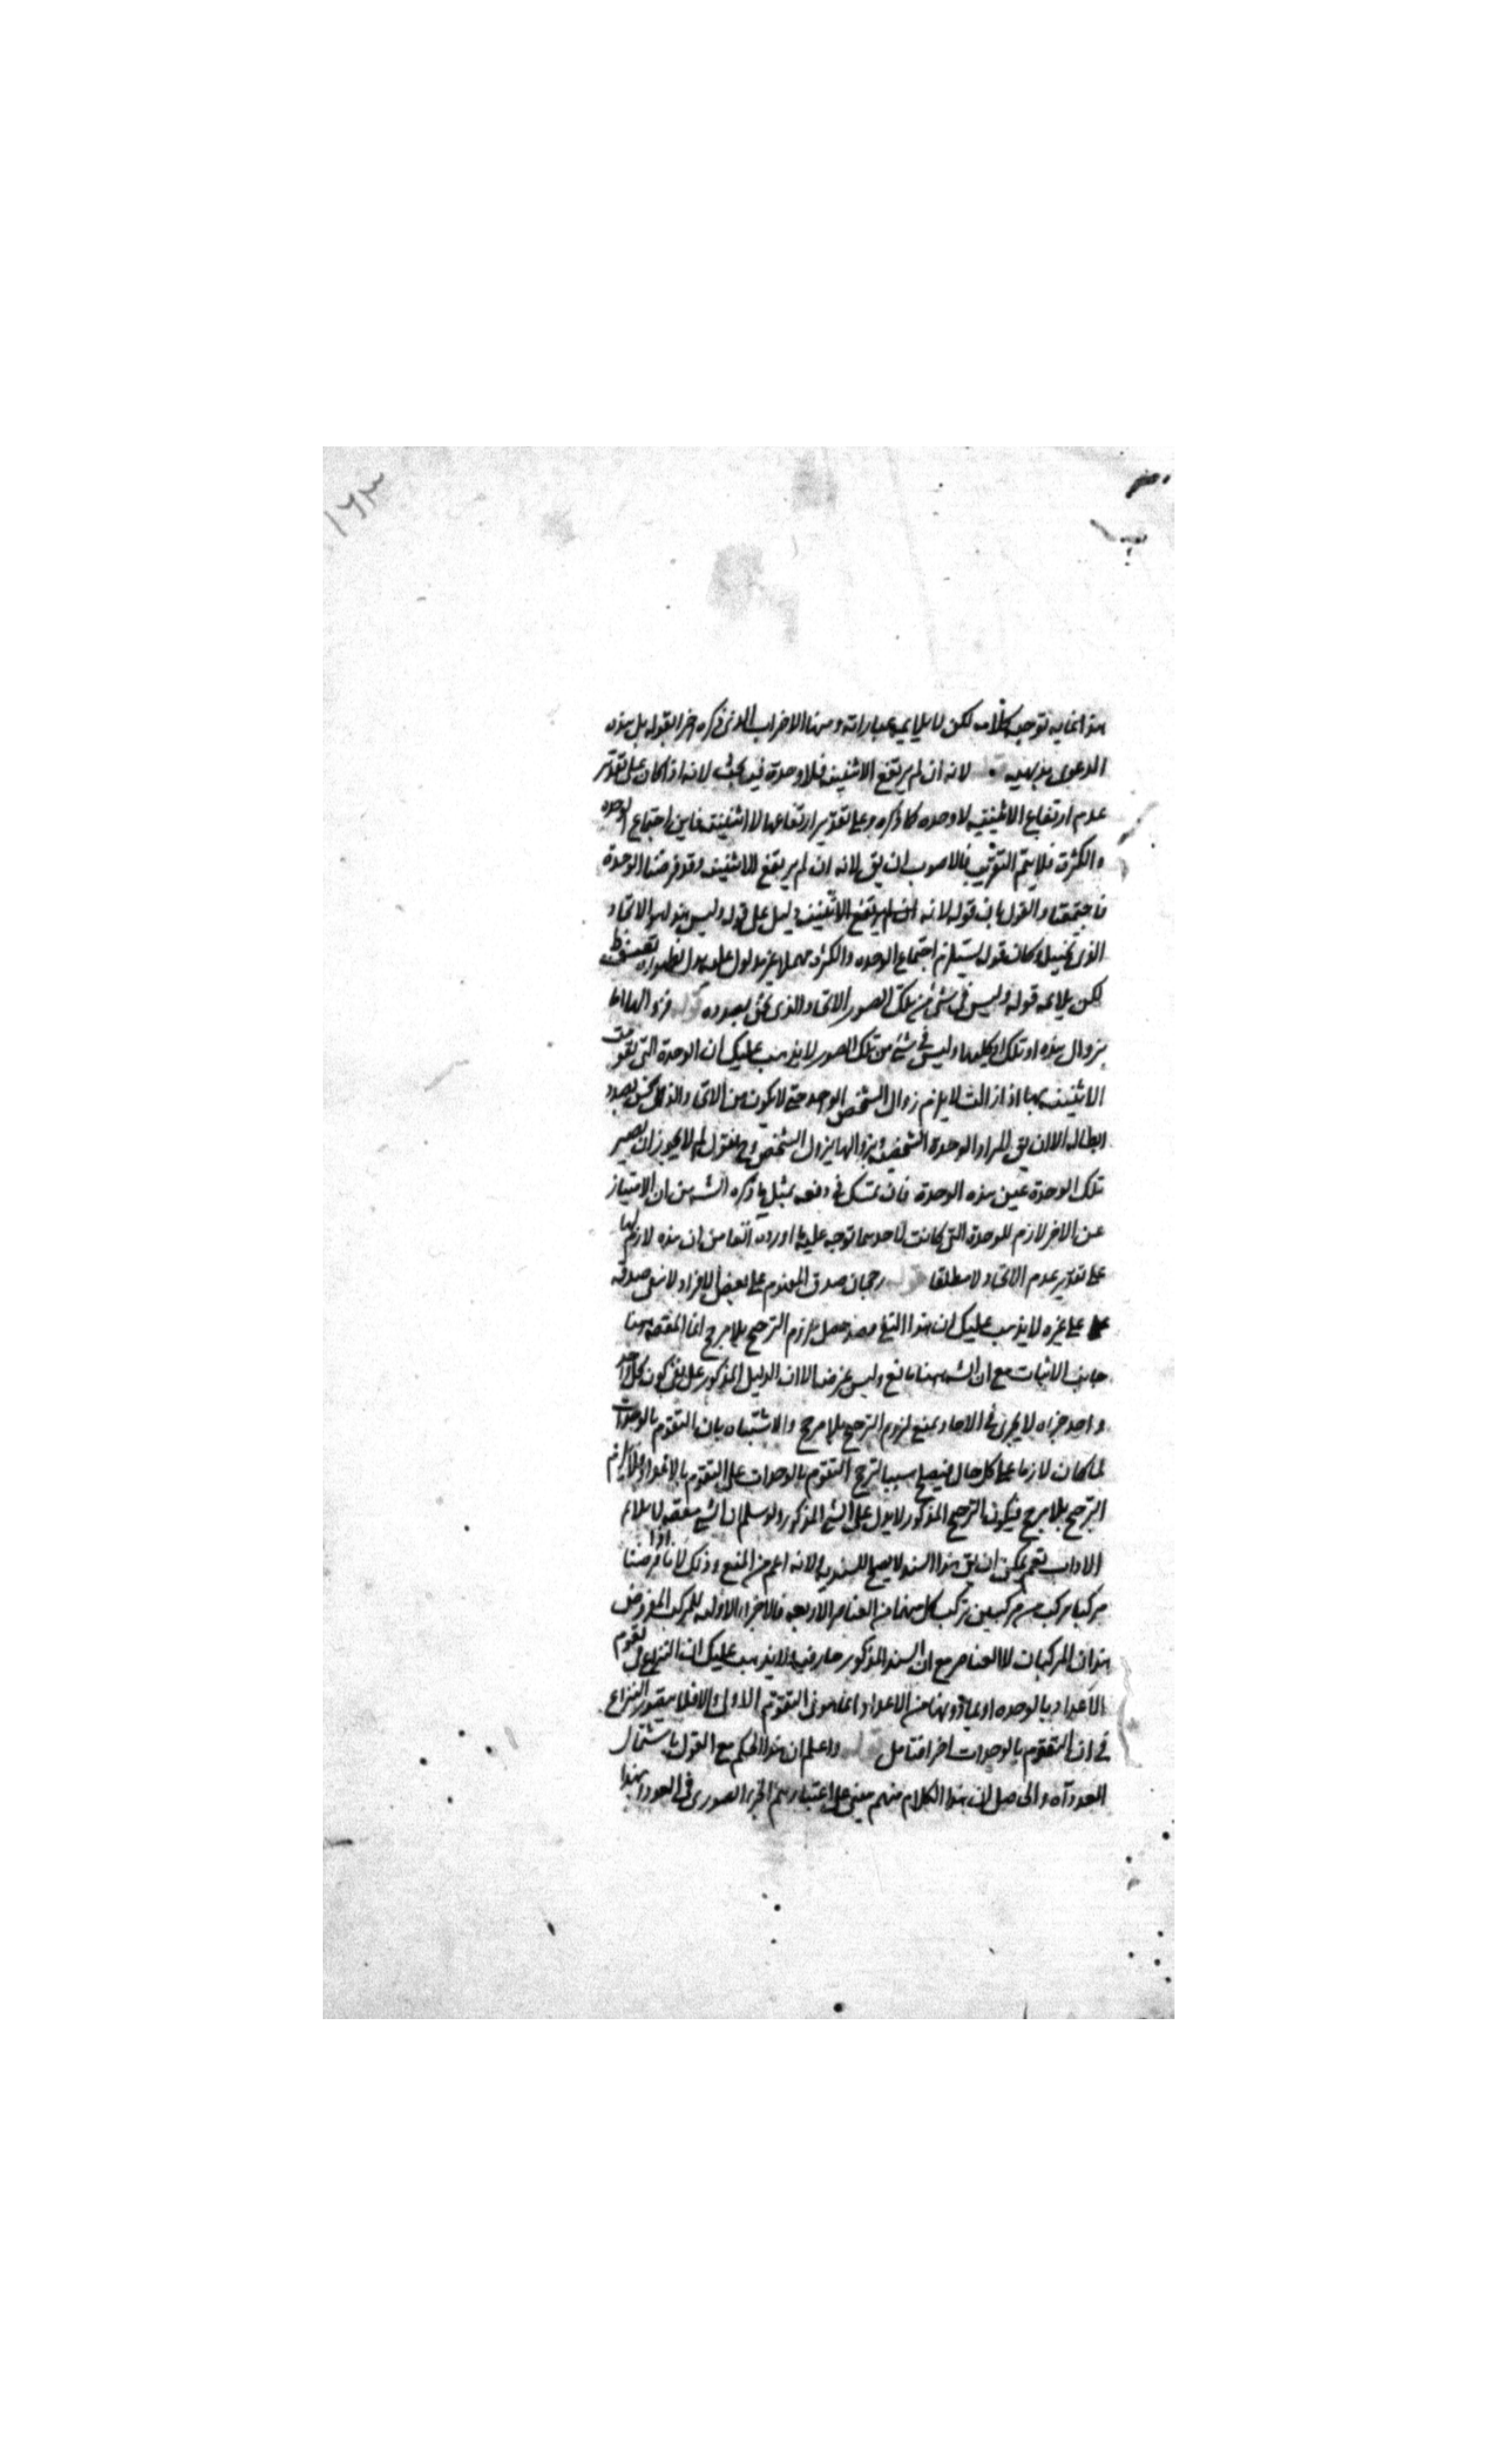 ١٦٣
هذا غاية توجيه كلامه لكن لا يلايمه عباراته ومنها الاضراب الذى ذكره اخرا بقوله بل هذه
الدعوى بديهية لانه ان لم يرتفع الاثنينية فلا وحدة فيه بحث لانه اذا كان على تقدير
عدم ارتفاع الاثنينية لا وحده كما ذكره وعلى تقدير ارتفاعها لا اثنينية فاين اجتماع الوحده
والكثرة فلا يتم التقريب فالاصوب ان يق لانه ان لم يرتفع الاثنينية وقد فرضنا الوحدة
فاجتمعتا والقول بان قوله لانه ان لم يرتفع الاثنينية دليل على قوله وليس هذا هو الاتحاد
الذى وكان قوله يستلزم اجتماع الوحده والكثرة مهملا غير مدلول عليه لظهوره تعسف
لكن يلايمه قوله وليس فى شئ من تلك الصور الاتحاد الذى نحن بصدده قوله
بزوال هذه او تلك او كليهما وليس فى شئ من تلك الصور لا يذهب عليك ان الوحدة التى تقومت
الاثنينية بها اذا زالت لا يلزم زوال الشخص الواحد حتى لا يكون من الاتحاد الذى نحن بصدد
ابطاله الا ان يق المراد الوحدة الشخصية وبزوالها يزول الشخص وح نقول لم لا يجوز ان يصير
تلك الوحدة عين هذه الوحدة فان تمسك فى دفعه بمثل ما ذكره الش من ان الامتياز
عن الاخر لازم للوحدة التى كانت لاحدهما توجه عليه ما اورده آنفا من ان هذه لازم لها
على تقدير عدم الاتحاد لا مطلقا قوله رجحان صدق المفهوم على بعض الافراد لا صدقه
على غيره لا يذهب عليك ان هذا لزم الترجيح بلا مرجح انما المقصود هنا
جانب الاثبات مع ان الش ههنا مانع وليس غرضه الا ان الدليل المذكور على نفى كون كل واحد
واحد جزاه لا يجرى فى الاحاد بمنع لزوم الترجيح بلا مرجح والاشتباه بان التقوم بالوحدات
لما كان لازما على كل حال فيصلح سببا لترجح التقوم بالوحدات على التقوم بالاعداد فلا يلزم
الترجيح بلا مرجح فيكون الترجيح المذكور لا يدل على الشئ المذكور ولو سلم ان الشئ
الاداب نعم يمكن ان يق هذا السند لا يصلح للسندية لانه اعم من المنع وذلك لانا اذا فرضنا
مركبا مركب من مركبين تركب كل منهما من العناصر الاربعة فالاجزاء الاولية للمركب المفروض
هذان المركبان لا العناصر مع ان السند المذكور جار فيه لا يذهب عليك ان النزاع فى تقوم
الاعداد بالوحده او بما دونها من الاعداد انما هو فى التقوم الاولى والا فلا يتصور النزاع
فى ان التقوم بالوحدات اجزا فتامل قوله واعلم ان هذا الحكم مع القول باشتمال
العدد آه والحاصل ان هذا الكلام منهم مبنى على اعتبارهم الجزء الصورى فى العدد